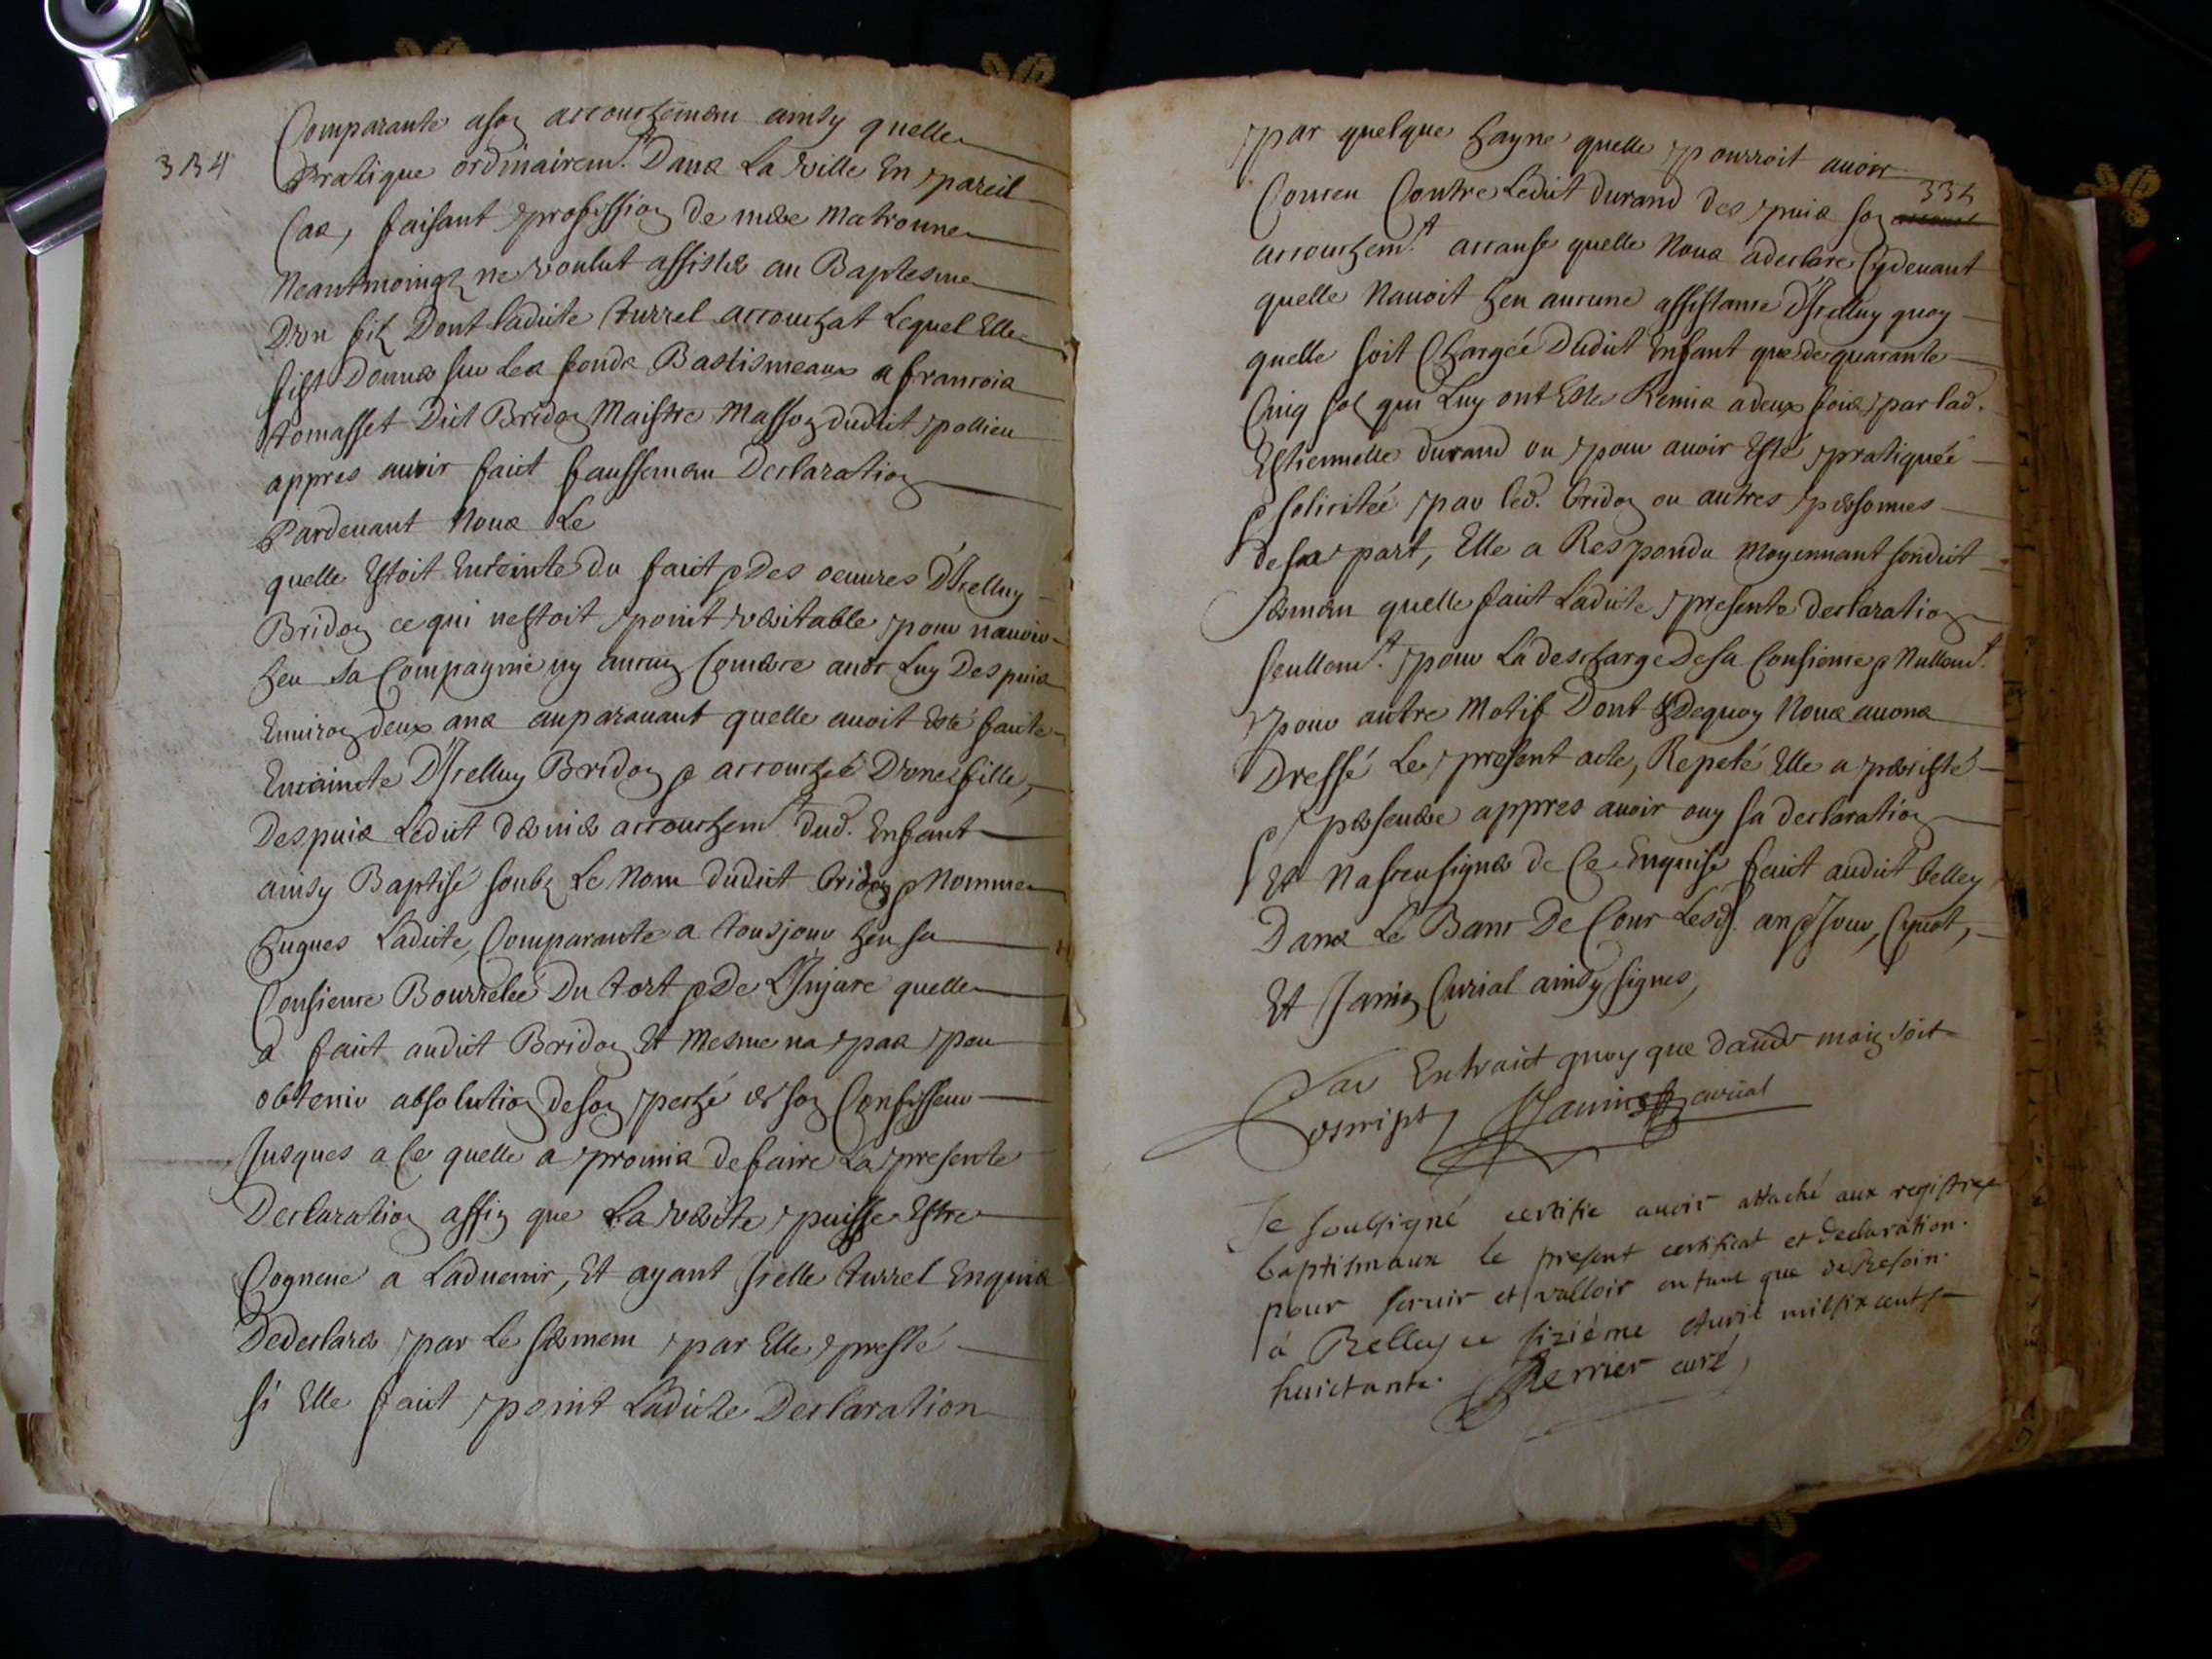 334
Comparante a son accouchemen ainsy quelle
Pratique ordinairemt. Dans La ville En pareil
Cas, faisant profession de mere Matronne
Neantmoings ne voulut assister au Baptesme
D'vn filz Dont ladicte turrel accouchat Lequel Elle
fist Donner sur Les fonds Baptismeaux a francois
tomasset Dict Bridon Maistre Masson dudict pollieu
appres auoir faict faussemen Declaration
Pardeuant Nous Le
quelle Estoit Enceinte du faict & des oeuures D'Icelluy
Bridon ce qui nestoit point veritable pour nauoir
heu sa Compagnie ny aucun Comerce auec Luy Despuis
Enuiron deux ans auparauant quelle auoit Esté faite
Enceincte D'Icelluy Bridon & accouchée D'vne fille,
Despuis Ledict dernier accouchemt. dud. Enfant
ainsy Baptisé soubz Le Nom dudict bridon & Nomme
hugues Ladicte Comparante a tousjour heu sa
Consience Bourrelée Du tort & De L'Injure quelle
a faict audict Bridon Et Mesme na pas peu
obtenir absolution de son peché de son Confesseur
Jusques a Ce quelle a promis de faire La presente
Declaration affin que La verite puisse Estre
Cogneue a Laduenir, Et ayant Icelle turrel Enquis
De declarer par Le sermem par Elle presté
si Elle faict point Ladicte Declaration
par quelque hayne quelle pourroit auoir
335
Conceu Contre Ledict durand despuis son
accouchemt. accause quelle Nous a declare Cydeuant
quelle Nauoit heu aucune assistance D'Icelluy quoy
quelle soit Chargée Dudict Enfant que de quarante
Cinq solz qui Luy ont Este Remis a deux fois par lad.
Estiennette durand ou pour auoir Esté pratiquée
& solicitée par led. bridon ou autres personnes
de sa part, Elle a Respondu Moyennant sondict
sermen quelle faict Ladicte presente declaration
seullemt. pour La descharge de sa Consience & Nullemt.
pour autre Motif Dont & Dequoy Nous auons
Dressé Le present acte, Repeté Elle a persisté
& perseuere appres auoir ouy sa declaration
Et Na sceu signer de Ce Enquise faict audict belley
Dans Le Banc De Cour Lesd. an & Jour, Cynot,
Et Janin Curial ainsy signes,
Par Extraict quoy que d'autre main soit
escript Janin curial
Je soubsigné certifie auoir attaché aux registres
baptismaux le present certificat et declaration.
pour seruir et valloir en tant que de Besoin.
à Belley ce sixiéme Auril mil six cent
huictante. Perrier curé